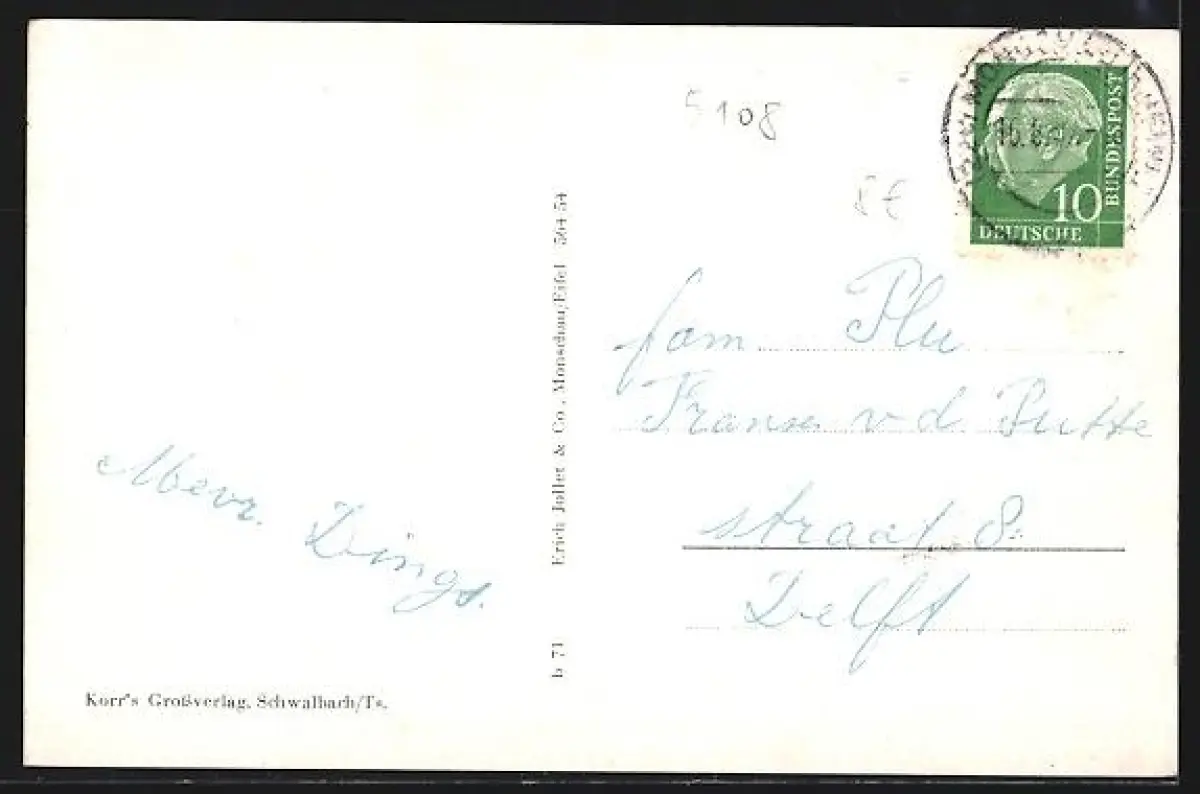 5108
8 €
10
BUNDESPOST
DEUTSCHE
fam Plu
Frans v d Putte
straat 8
Delft
Mevr. Dings.
Erich Jollet & Co., Monschau/Eifel 564 54
b 71
Korr's Großverlag, Schwalbach/Ts.